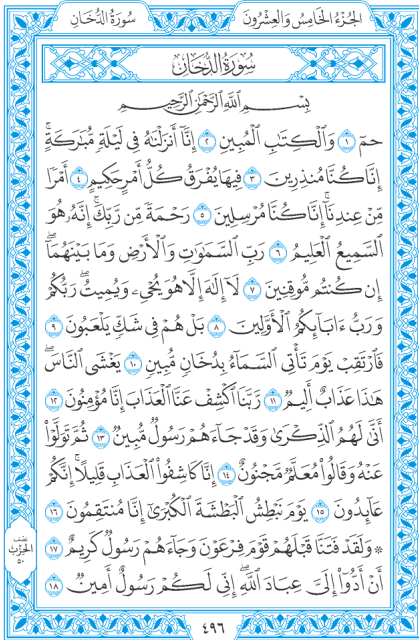 الجزء الخامس والعشرون
سورة الدخان
سُورَةُ الدُّخَانِ
بِسْمِ اللَّهِ الرَّحْمَٰنِ الرَّحِيمِ
حمٓ ١ وَالْكِتَابِ الْمُبِينِ ٢ إِنَّا أَنْزَلْنَاهُ فِي لَيْلَةٍ مُبَارَكَةٍ ۚ
إِنَّا كُنَّا مُنْذِرِينَ ٣ فِيهَا يُفْرَقُ كُلُّ أَمْرٍ حَكِيمٍ ٤ أَمْرًا
مِنْ عِنْدِنَا ۚ إِنَّا كُنَّا مُرْسِلِينَ ٥ رَحْمَةً مِنْ رَبِّكَ ۚ إِنَّهُ هُوَ
السَّمِيعُ الْعَلِيمُ ٦ رَبِّ السَّمَاوَاتِ وَالْأَرْضِ وَمَا بَيْنَهُمَا ۖ
إِنْ كُنْتُمْ مُوقِنِينَ ٧ لَا إِلَٰهَ إِلَّا هُوَ يُحْيِي وَيُمِيتُ ۖ رَبُّكُمْ
وَرَبُّ آبَائِكُمُ الْأَوَّلِينَ ٨ بَلْ هُمْ فِي شَكٍّ يَلْعَبُونَ ٩
فَارْتَقِبْ يَوْمَ تَأْتِي السَّمَاءُ بِدُخَانٍ مُبِينٍ ١٠ يَغْشَى النَّاسَ ۖ
هَٰذَا عَذَابٌ أَلِيمٌ ١١ رَبَّنَا اكْشِفْ عَنَّا الْعَذَابَ إِنَّا مُؤْمِنُونَ ١٢
أَنَّىٰ لَهُمُ الذِّكْرَىٰ وَقَدْ جَاءَهُمْ رَسُولٌ مُبِينٌ ١٣ ثُمَّ تَوَلَّوْا
عَنْهُ وَقَالُوا مُعَلَّمٌ مَجْنُونٌ ١٤ إِنَّا كَاشِفُو الْعَذَابِ قَلِيلًا ۚ إِنَّكُمْ
عَائِدُونَ ١٥ يَوْمَ نَبْطِشُ الْبَطْشَةَ الْكُبْرَىٰ إِنَّا مُنْتَقِمُونَ ١٦
۞ وَلَقَدْ فَتَنَّا قَبْلَهُمْ قَوْمَ فِرْعَوْنَ وَجَاءَهُمْ رَسُولٌ كَرِيمٌ ١٧
أَنْ أَدُّوا إِلَيَّ عِبَادَ اللَّهِ ۖ إِنِّي لَكُمْ رَسُولٌ أَمِينٌ ١٨
نصف
الحزب
٥٠
٤٩٦